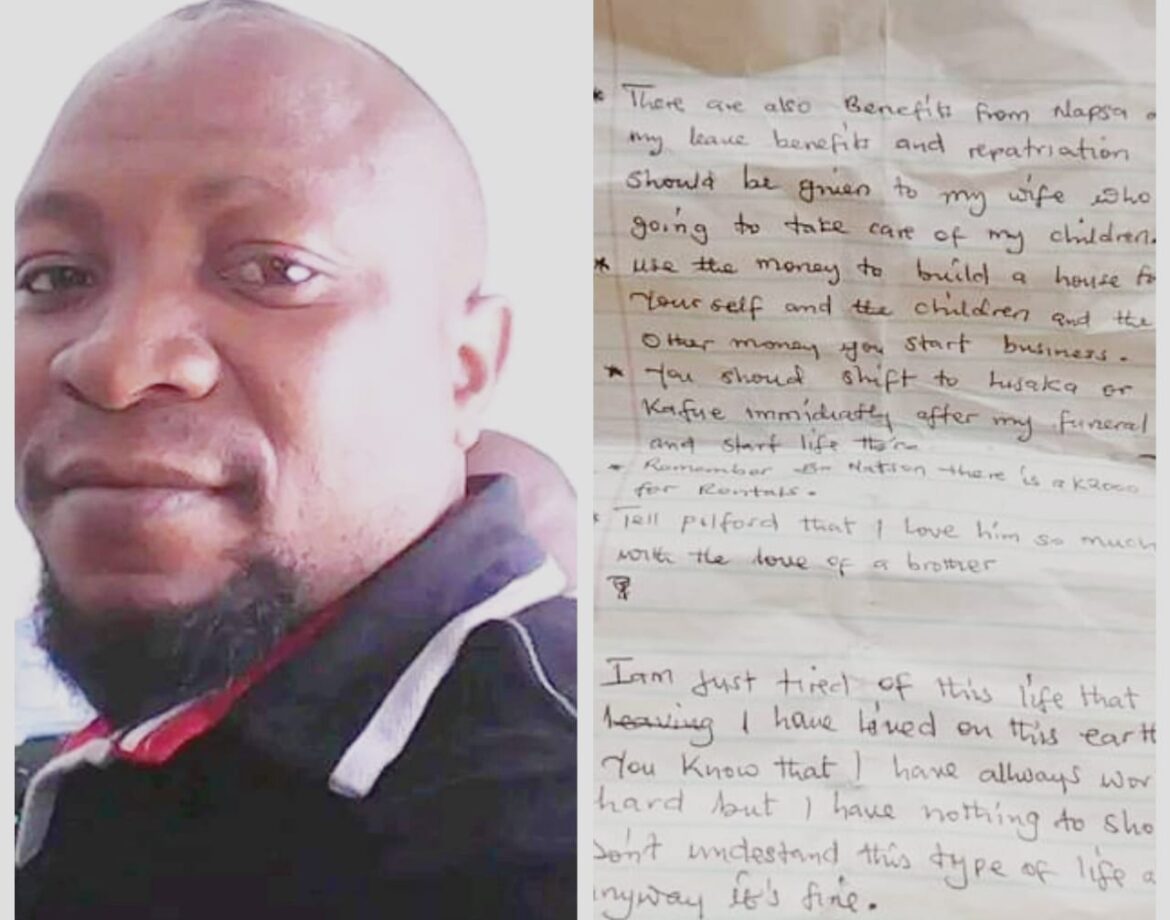 * There are also Benefits from Napsa
my leave benefits and repatriation
should be given to my wife who
going to take care of my children.
* use the money to build a house
Your self and the children and the
Other money you start business.
* You shoud shift to Lusaka or
Kafue immidiatly after my funeral
and start life
* Remember on Nation there is a K2000
for Rentals.
* Tell pilford that I love him so much
with the love of a brother
I am just tired of this life that
leaving I have lived on this earth
You Know that I have allways
hard but I have nothing to
Don't undestand this type of life
anyway it's fine.